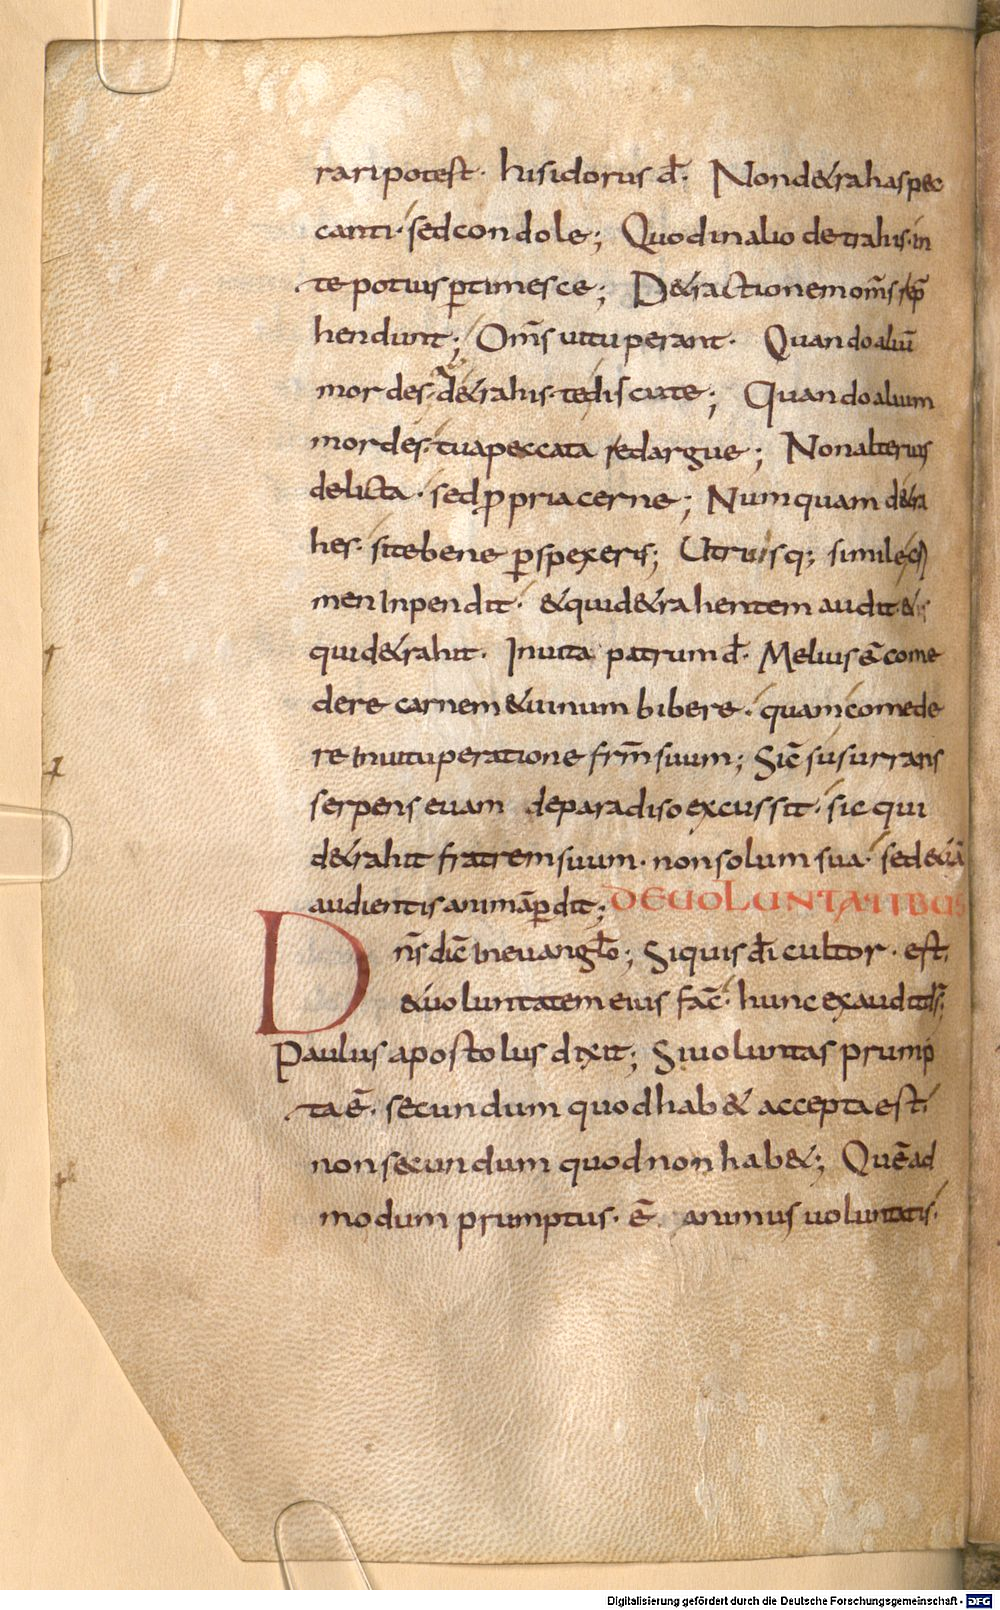 raripotest· hisidorus dꝉ· Nond&rahaspec
canti· sedcondole; Quodinalio detrahis· in
te potius ꝑtimesce; D&ractionem om̄s rep̄
hendunt; Om̄s uituperant· Quandoaliū
mordes· d&rahis· tediscute; Quandoalium
mordes· tuapeccata redargue; Nonalterius
delicta· sed ꝓpriacerne; Numquam d&ra
hes· sitebene ꝑspexeris; Utrisq; simile
men inpendit· &quid&rahentem audit·
quid&rahit· Inuita patrum dꝉ· Melius ē come
dere carnem &uinum bibere· quam comede
re inuituperatione frm̄ suum; Sic̄ susurrans
serpens euam deparadiso excussit· sic qui
d&rahit fratrem suum· nonsolum sua· sed&iā
audientis animā ꝑdit; DE UOLUNTATIBUS
Dn̄s dic̄ ineuanglo; Siquis dī cultor· est·
&uoluntatem eius fac̄· hunc exaudit
Paulus apostolus dixit; Siuoluntas prump
ta ē· secundum quod hab& accepta est·
non secundum quod non hab&; Quēad
modum prumptus· ē animus uoluntatis·
Digitalisierung gefördert durch die Deutsche Forschungsgemeinschaft - DFG